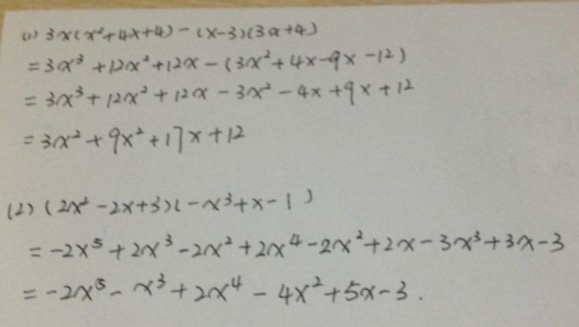 (1) 3x(x²+4x+4)-(x-3)(3x+4)
=3x³+12x²+12x-(3x²+4x-9x-12)
=3x³+12x²+12x-3x²-4x+9x+12
=3x²+9x²+17x+12
(2) (2x²-2x+3)(-x³+x-1)
=-2x⁵+2x³-2x²+2x⁴-2x²+2x-3x³+3x-3
=-2x⁵-x³+2x⁴-4x²+5x-3.